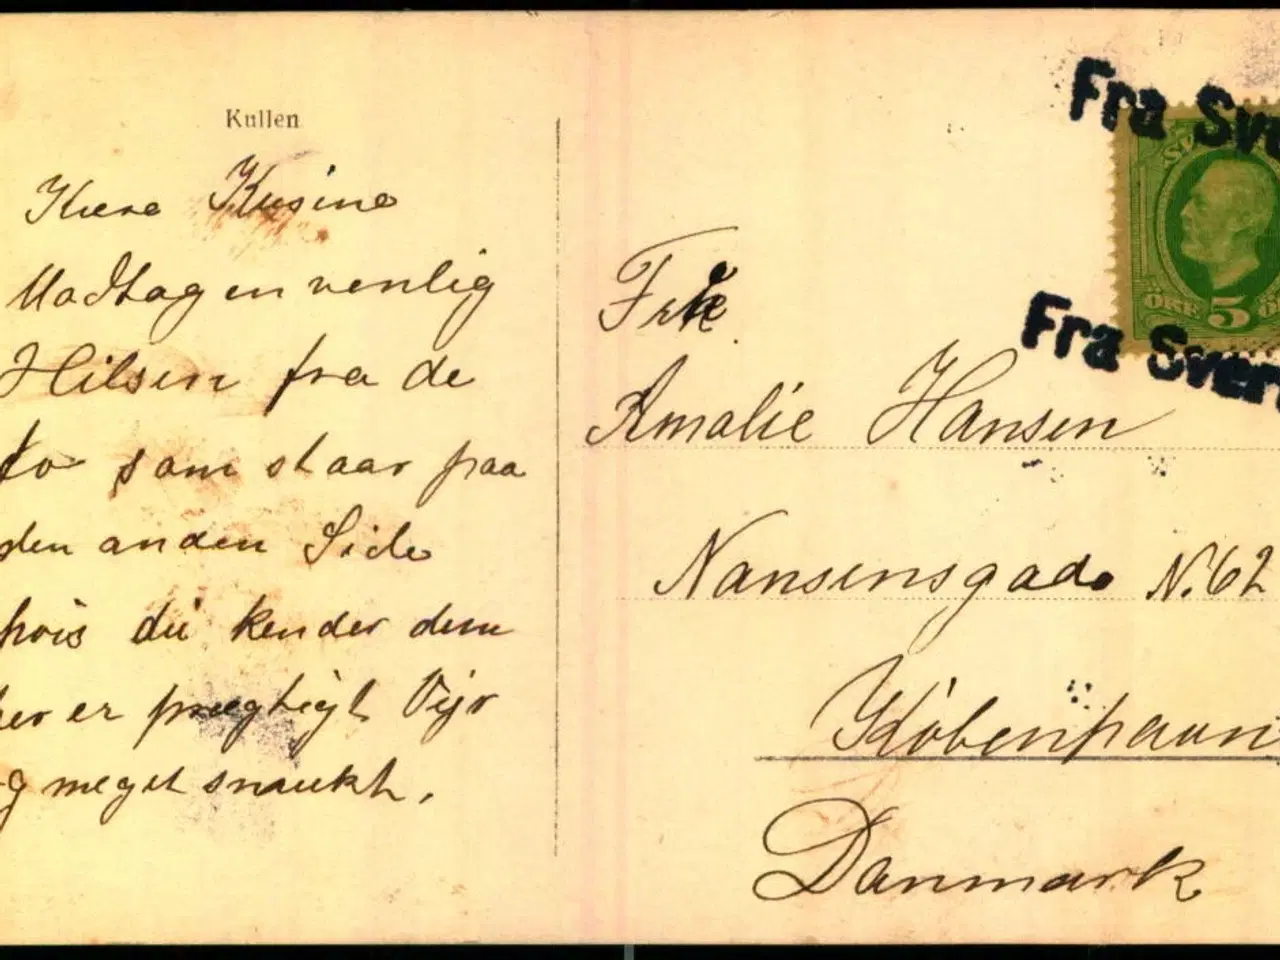 Kullen
Kære Kusine
Modtag en venlig
Hilsen fra de
to som staar paa
den anden Side
hvis du kender dem
her er prægtigt Vejr
og meget smukt.
Fra Sve
SV
ÖRE 5 Ö
Fra Sver
Frk.
Amalie Hansen
Nansensgade N. 62
Københaven
Danmark